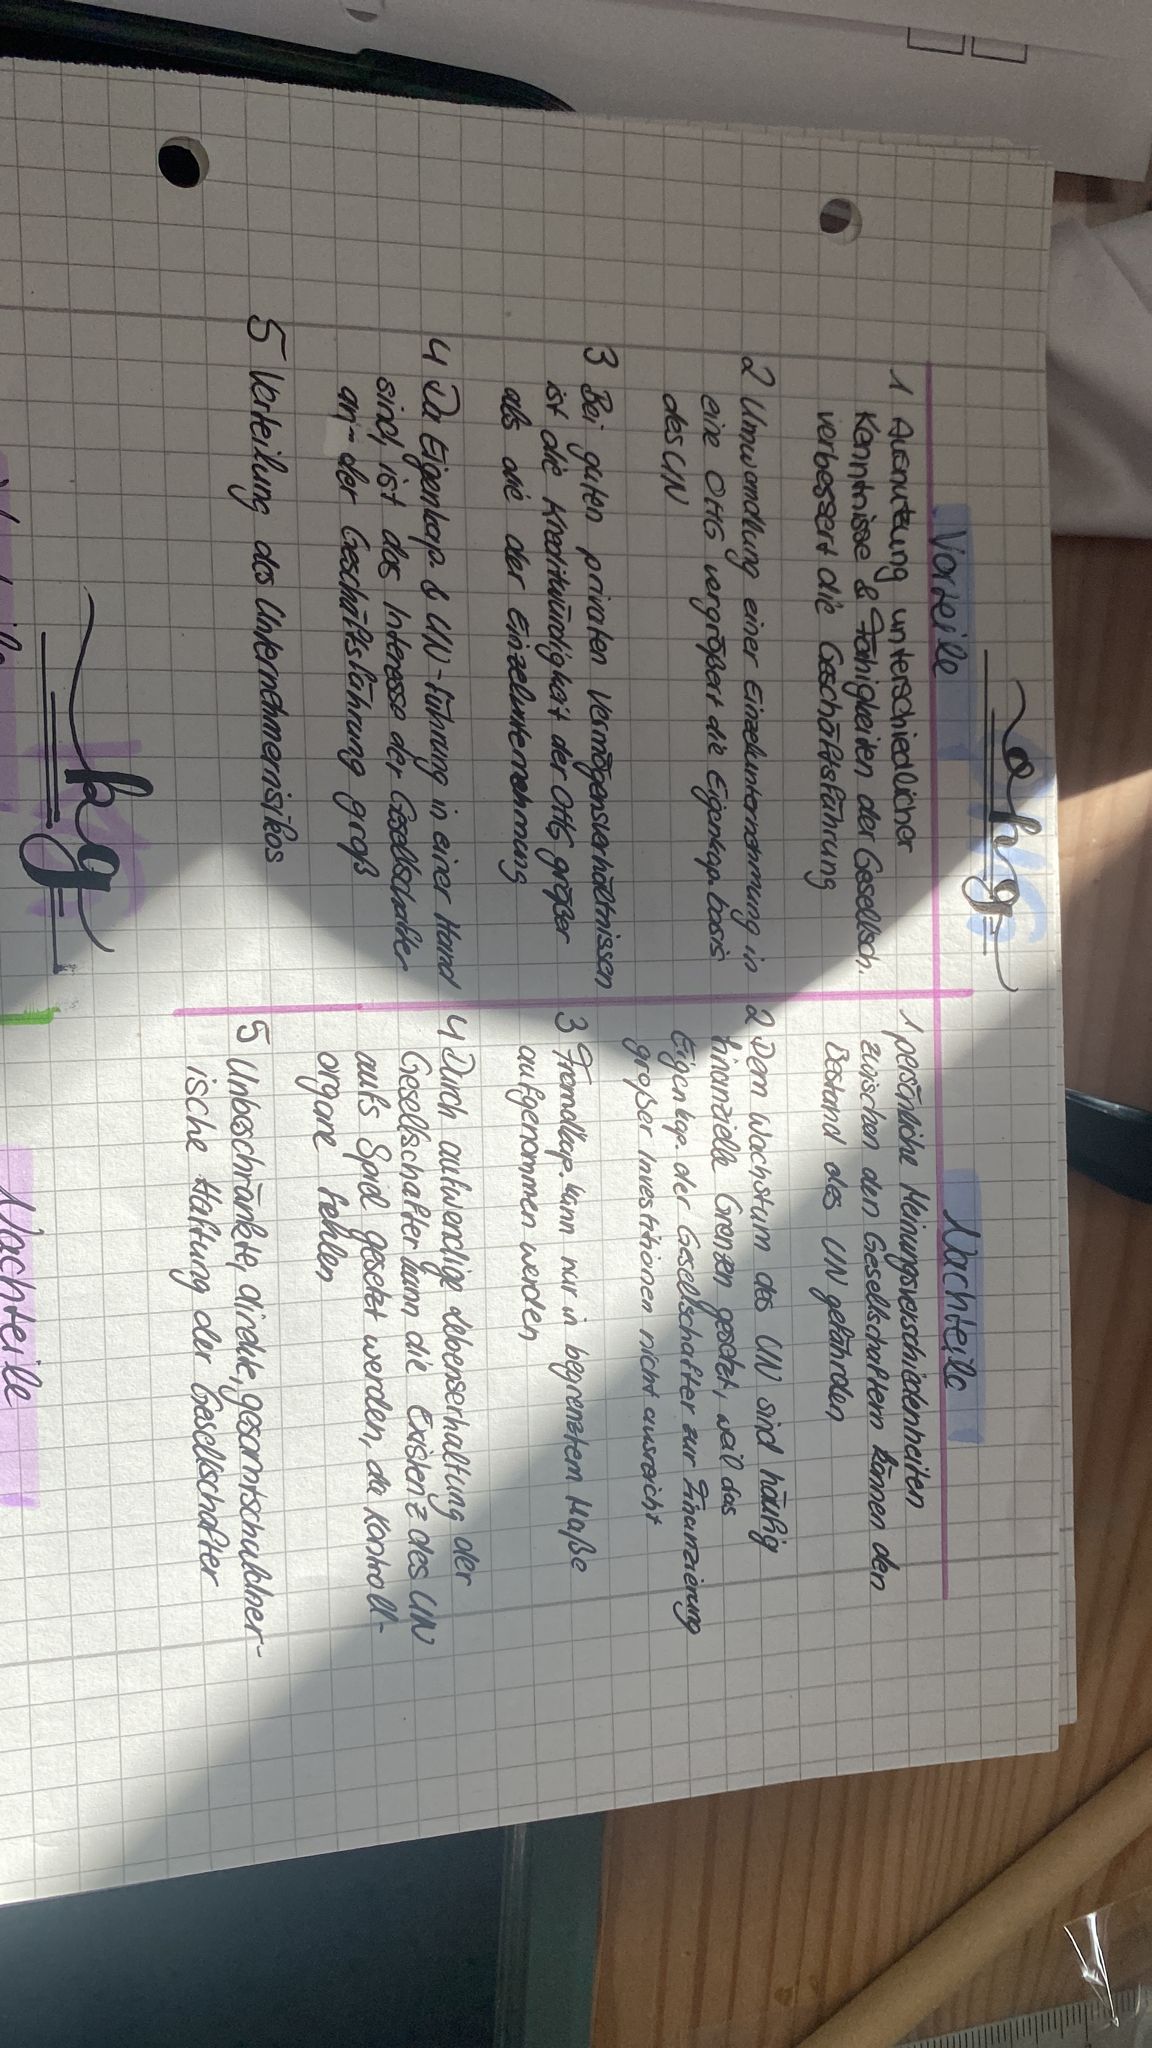 ohg
Vorteile
1 Ausnutzung unterschiedlicher
Kenntnisse & Fähigkeiten der Gesellsch.
verbessert die Geschäftsführung
2 Umwandlung einer Einzelunternehmung in
eine OHG vergrößert die Eigenkap.basis
des UN
3 Bei guten privaten Vermögensverhältnissen
ist die Kreditwürdigkeit der OHG größer
als die der Einzelunternehmung
4 Da Eigenkap. & UN-führung in einer Hand
sind, ist das Interesse der Gesellschafter
an der Geschäftsführung groß
5 Verteilung des Unternehmerrisikos
Nachteile
1 persönliche Meinungsverschiedenheiten
zwischen den Gesellschaftern können den
Bestand des UN gefährden
2 Dem Wachstum des UN sind häufig
finanzielle Grenzen gesetzt, weil das
Eigenkap. der Gesellschafter zur Finanzierung
großer Investitionen nicht ausreicht
3 Fremdkap. kann nur in begrenztem Maße
aufgenommen werden
4 Durch aufwendige Lebenserhaltung der
Gesellschafter kann die Existenz des UN
aufs Spiel gesetzt werden, da Kontroll-
organe fehlen
5 Unbeschränkte, direkte, gesamtschuldner-
ische Haftung der Gesellschafter
kg
Nachteile